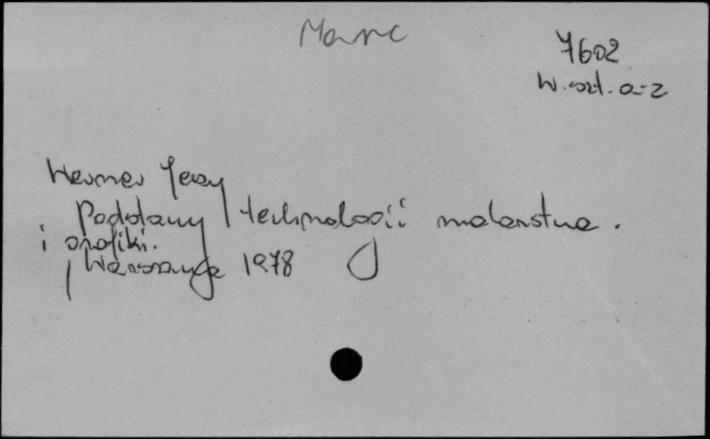 Marc
7602
W. szt. a-z
Werner Jerzy
Podstawy technologii malarstwa.
i grafiki.
Warszawa 1978